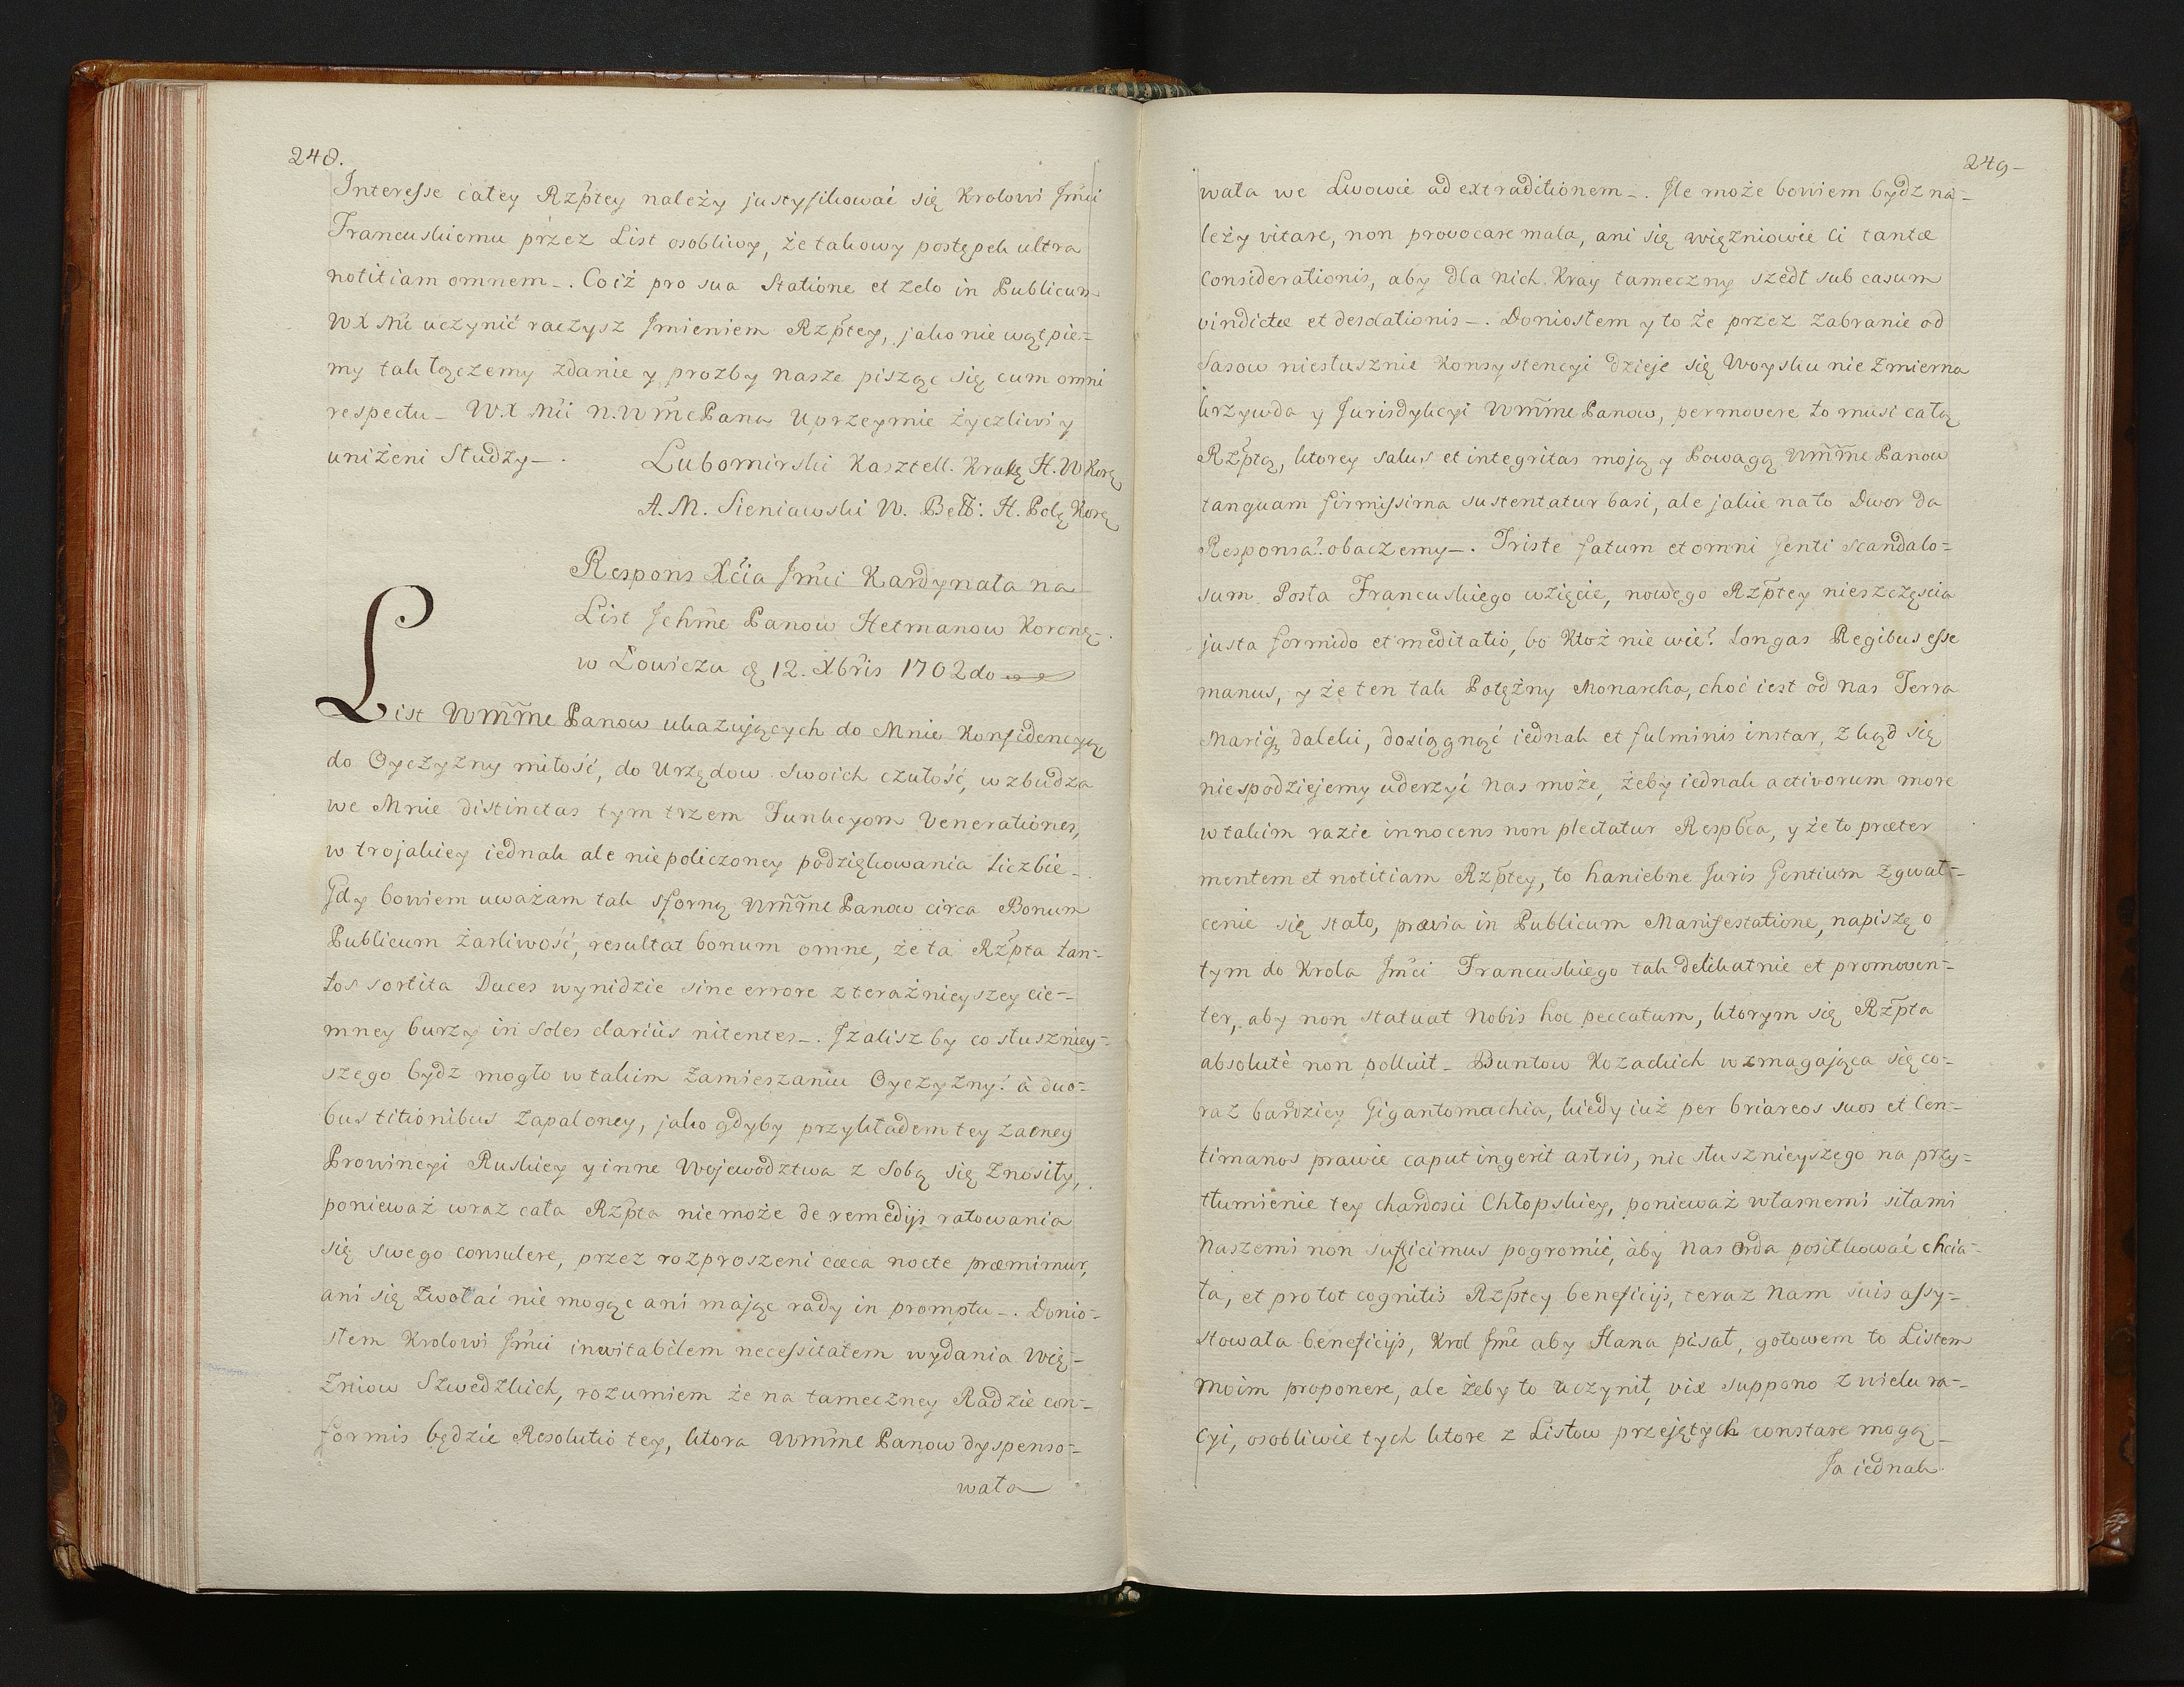 248.
Interesse całey Rzptey należy justyfikować się Krolowi Jmci
Francuskiemu przez List osobliwy, że takowy postępek ultra
notitiam omnem_. Coiż pro sua Statione et zelo in Publicum
WX Mć uczynić raczysz Jmieniem Rzptey, jako nie wątpie=
my tak łączemy zdanie y prozby nasze pisząc się cum omni
respectu_ W.X Mci N.WmcPana Uprzeymie życzliwi y
uniżeni Słudzy_.
Lubomirski Kasztell. Krakę H.W Korę
A. M. Sieniawski W. Bełł: H. Polę Korę
Respons Xcia Jmci Kardynała na
List Jchme Panow Hetmanow Koronę.
w Łowiczu d 12. Xbris 1702do
List Wmme Panow ukazujących do Mnie Konfidencyą
do Oyczyzny miłość, do Urzędow swoich czułość, wzbudza
we Mnie distinctas tym trzem Funkcyom Venerationes,
w trojakiey iednak ale niepoliczoney podziękowania liczbie_.
Gdy bowiem uważam tak sforną Wmme Panow circa Bonum
Publicum żarliwość, resultat bonum omne, że ta Rzpta tan=
tos sortita Duces wynidzie sine errore z terażnieyszey cie=
mney burzy in Soles clarius nitentes_. Jzalisz by co słuszniey=
szego bydz mogło w takim zamieszaniu Oyczyzny! à duo=
bus titionibus zapaloney, jako gdyby przykładem tey zacney
Prowincyi Ruskiey y inne Wojewodztwa z sobą się znosiły,
ponieważ wraz cała Rzpta nie może de remedijs ratowania
się swego consulere, przez rozproszeni cæca nocte præmimur,
ani się zwołać nie mogąc ani mając rady in promptu_. Donio=
słem Krolowi Jmci inevitabilem necessitatem wydania Wię=
zniow Szwedzkich, rozumiem że na tameczney Radzie con=
formis będzie Resolutio tey, ktora Wmme Panow dyspenso=
wała
249_
wała we Lwowie ad extraditionem_. Jle może bowiem bydz na=
leży vitare, non provocare mala, ani się więzniowie ci tantæ
considerationis, aby dla nich Kray tameczny szedł sub casum
vindictæ et desolationis_. Doniosłem y to że przez zabranie od
Sasow niesłusznie Konsystencyi dzieje się Woysku nie zmierna
krzywda y Jurisdykcyi Wmme Panow, permovere to musi całą
Rzptą, ktorey salus et integritas moją y Powagą Wmme Panow
tanquam firmissima sustentatur basi, ale jakie na to Dwor da
Responsa? obaczemy_. Triste fatum et omni genti scandalo=
sum Posła Francuskiego wzięcie, nowego Rzptey nieszczęscia
justa formido et meditatio, bo Ktoż nie wie? longas Regibus esse
manus, y że ten tak Potężny Monarcha, choć iest od nas Terra
Mariq daleki, dosięgnąć iednak et fulminis instar, zkąd się
niespodziejemy uderzyć nas może, żeby iednak activorum more
w takim razie innocens non plectatur Respbca, y że to præter
mentem et notitiam Rzptey, to haniebne Juris Gentium zgwał=
cenie się stało, prævia in Publicum Manifestatione, napiszę o
tym do Krola Jmci Francuskiego tak delikatnie et promoven=
ter, aby non statuat Nobis hoc peccatum, ktorym się Rzpta
absolutè non polluit_ Buntow Kozackich wzmagająca się co=
raz bardziey Gigantomachia, kiedy iuż per briareos suos et Cen=
timanos prawie caput ingerit astris, nic słusznieyszego na przy=
tłumienie tey chardosci Chłopskiey, ponieważ własnemi siłami
Naszemi non sufficimus pogromić, àby Nas Orda posiłkować chcia=
ła, et pro tot cognitis Rzptey beneficijs, teraz Nam suis assy=
stowała beneficijs, Krol Jmć aby Hana pisał, gotowem to Listem
moim proponere, ale żeby to uczynił, vix suppono z wielu ra=
cyi, osobliwie tych ktore z Listow przejętych constare mogą_
Ja iednak